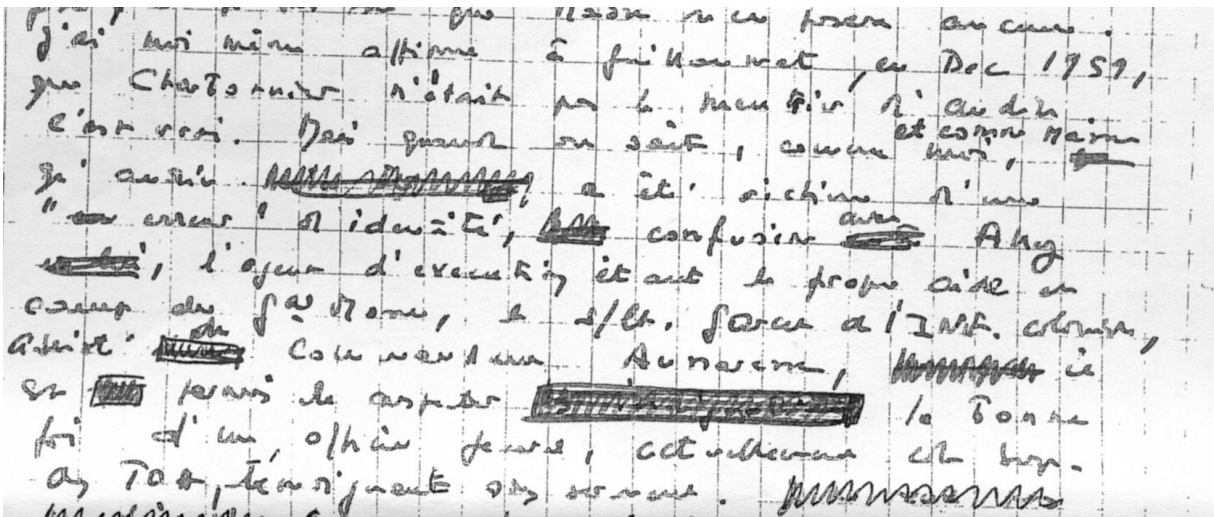 que Massu n'en posera aucune.
j'ai moi même affirmé à Guillaumat, en Dec 1959,
que Charbonnier n'était pas le meurtrier d'audin
c'est vrai. Mais quand on sait, comme moi, et comme Massu
qu'audin a été victime d'une
"erreur" d'identité, confusion avec Aleg
, l'agent d'execution étant le propre aide de
camp du Gal Massu, le s/lt. Garcet de l'INF. coloniale,
assisté du Commandant Aussaresses, il
est permis de suspecter la bonne
foi d'un officier général, actuellement
témoignant sous serment.